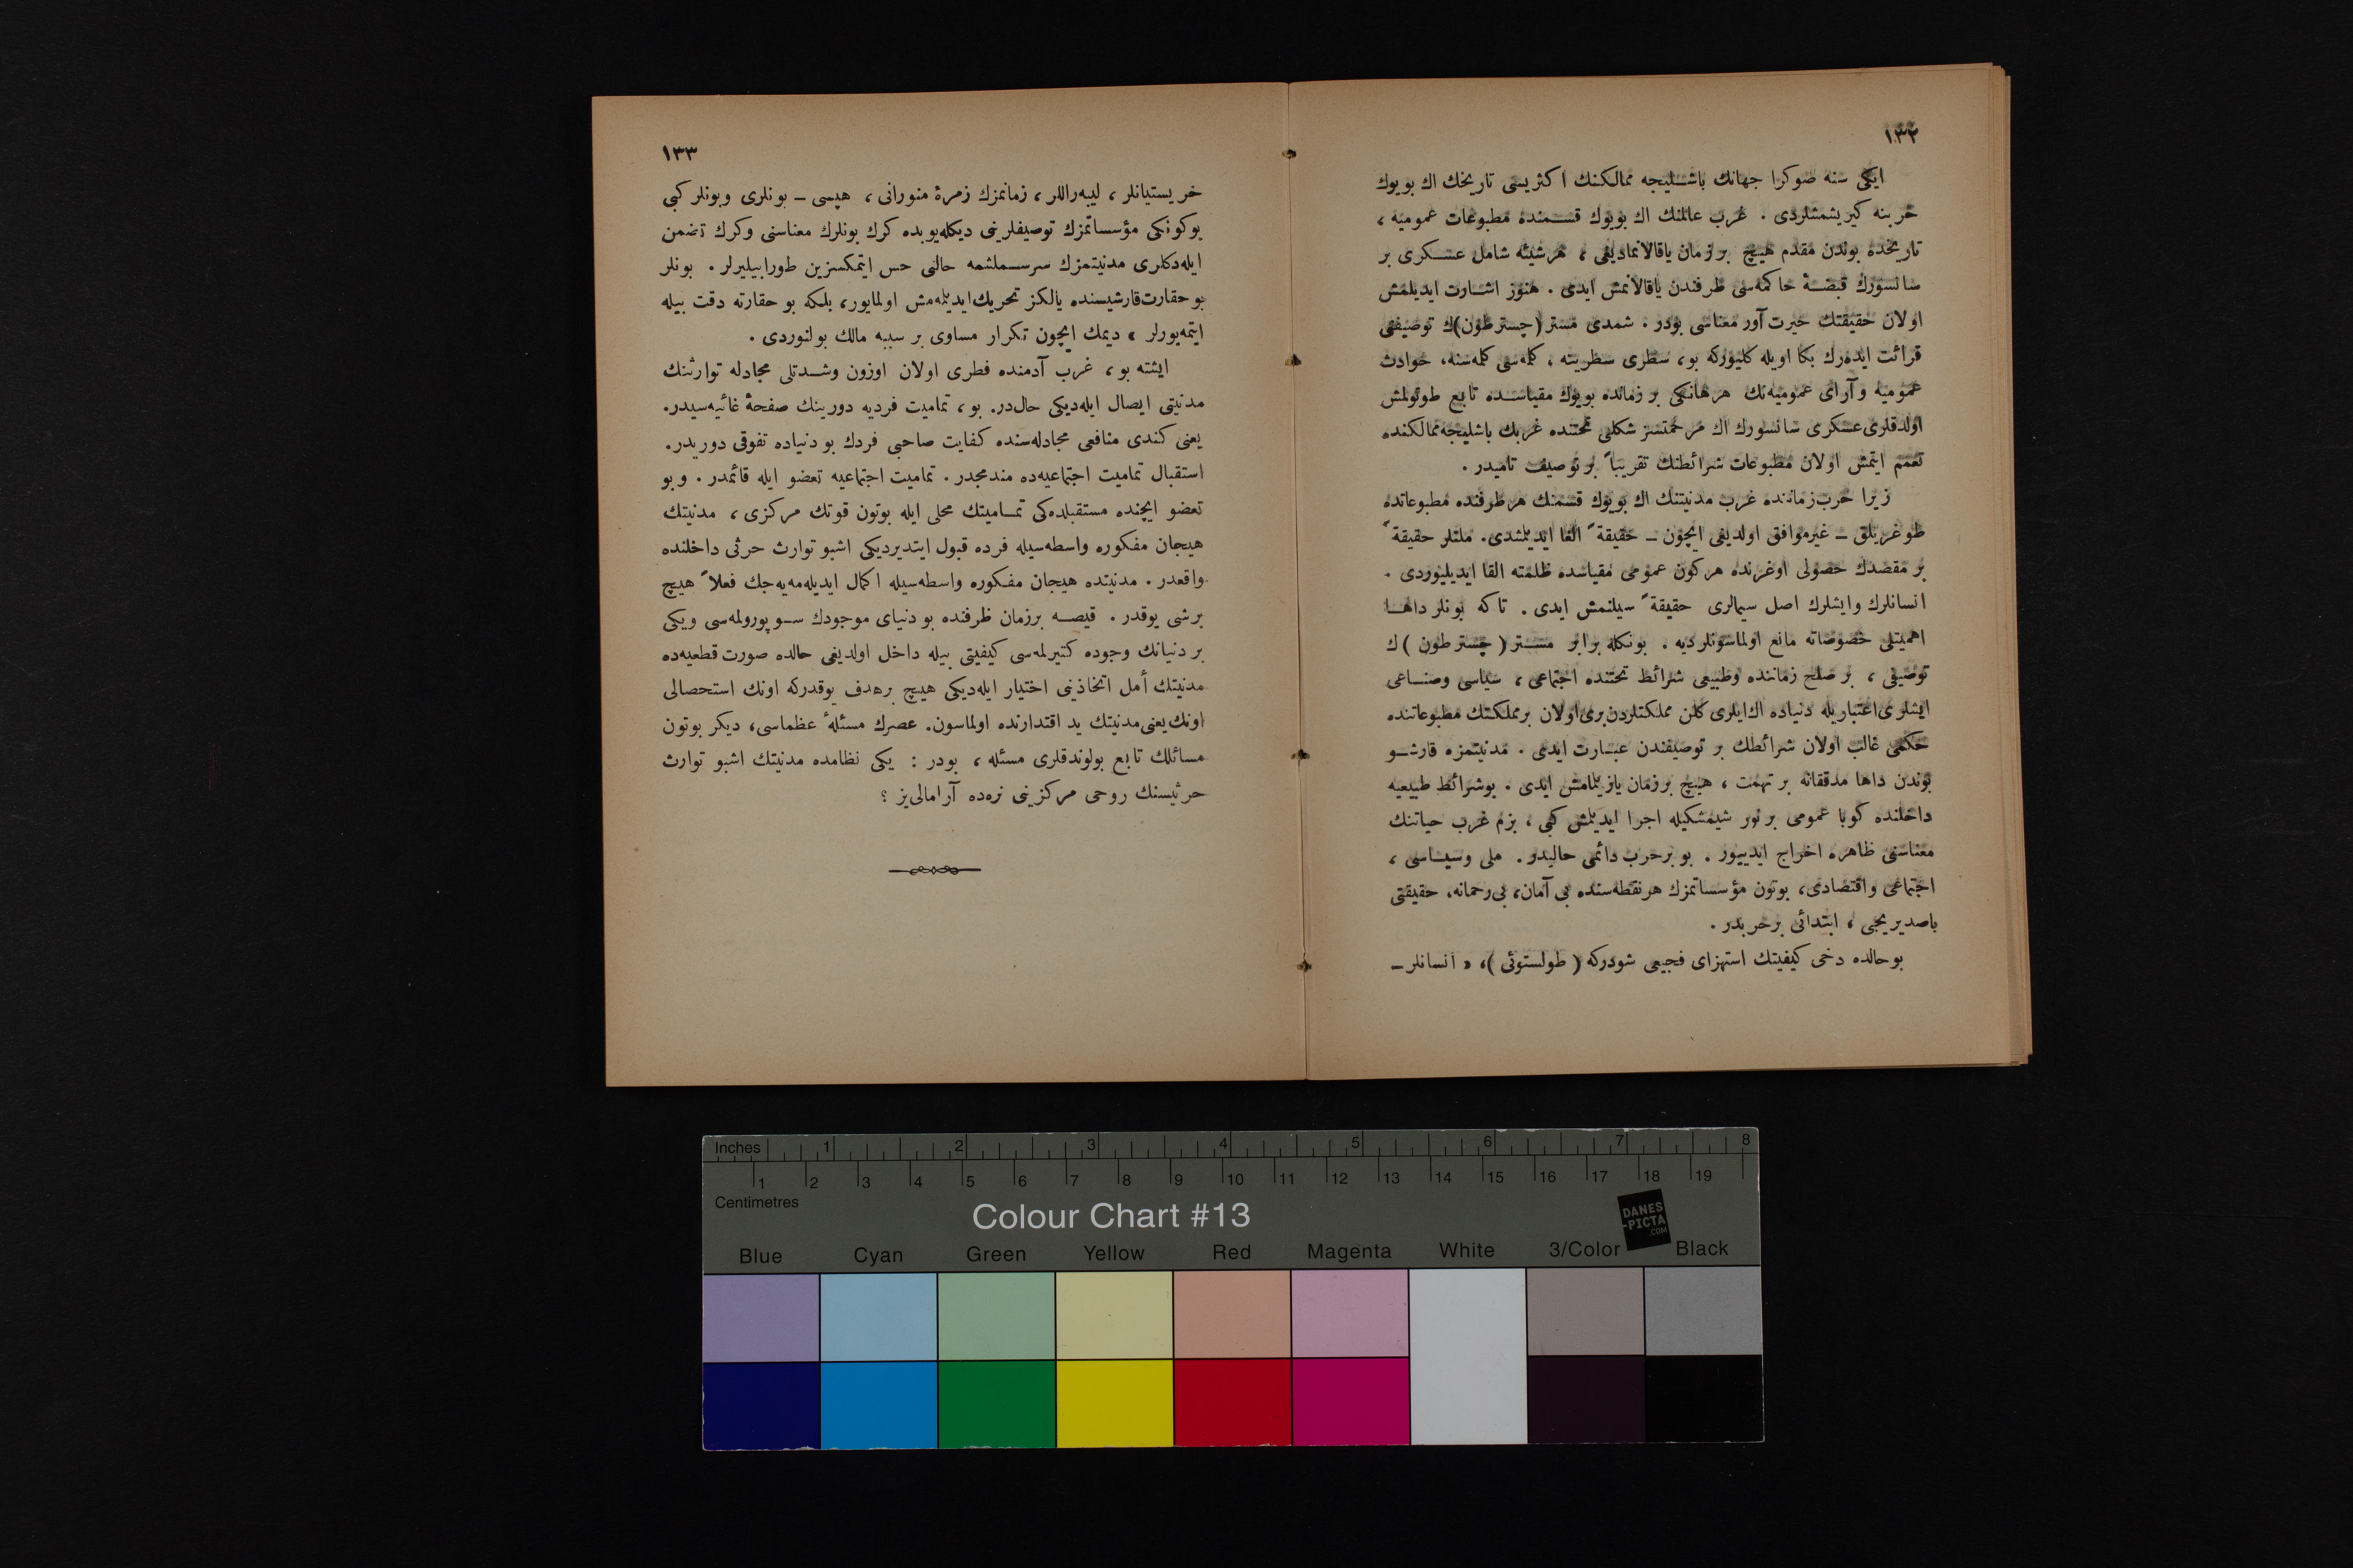 ١٣٢
ایکی سنه صوکرا جهانك باشلیجه ممالکنك اکثریسی تاریخك اك بویوك
حربنه کیریشمشلردی . غرب عالمنك اك بویوك قسمنده مطبوعات عمومیه ،
تاریخده بوندن مقدم هیچ بر زمان یاقالانمادیغی ، هرشیئه شامل عسکری بر
سانسورك قبضهٔ حاکمه‌سی طرفندن یاقالانمش ایدی . هنوز اشارت ایدیلمش
اولان حقیقتك حیرت آور معناسی بودر . شمدی مستر (چسترطون)ك توصیفنی
قرائت ایده‌رك بکا اویله کلیورکه بو ، سطری سطرینه ، کلمه‌سی کلمه‌سنه ، حوادث
عمومیه وآرای عمومیه‌نك هرهانکی بر زمانده بویوك مقیاسده تابع طوتولمش
اولدقلری عسکری سانسورك اك مرحمتسز شکلی تحتنده غربك باشلیجه ممالکنده
تعمم ایتمش اولان مطبوعات شرائطنك تقریباً بر توصیف تامیدر .
زیرا حرب زماننده غرب مدنیتنك اك بویوك قسمنك هر طرفنده مطبوعاتده
طوغریلق ــ غیرموافق اولدیغی ایچون ــ حقیقةً الغا ایدیلمشدی . ملتلر حقیقةً
بر مقصدك حصولی اوغرنده هرکون عمومی مقیاسده ظلمته القا ایدیلیوردی .
انسانلرك وایشلرك اصل سیمالری حقیقةً سیلنمش ایدی . تا که بونلر داها
اهمیتلی خصوصاته مانع اولماسونلر دیه . بونکله برابر مستر ( چسترطون ) ك
توصیفی ، بر صلح زماننده وطبیعی شرائط تحتنده اجتماعی ، سیاسی وصناعی
ایشلری اعتباریله دنیاده اك ایلری کلن مملکتلردن بری اولان بر مملکتك مطبوعاتنده
حکمی غالب اولان شرائطك بر توصیفندن عبارت ایدی . مدنیتمزه قارشو
بوندن داها مدققانه بر تهمت ، هیچ بر زمان یازیلمامش ایدی . بوشرائط طبیعیه
داخلنده کویا عمومی بر نور شیمشکیله اجرا ایدیلمش کبی ، بزم غرب حیاتنك
معناسنی ظاهره اخراج ایدییور . بو برحرب دائمی حالیدر . ملی وسیاسی ،
اجتماعی واقتصادی ، بوتون مؤسساتمزك هرنقطه‌سنده بی آمان ، بی رحمانه ، حقیقتی
باصدیریجی ، ابتدائی برحربدر .
بوحالده دخی کیفیتك استهزای فجیعی شودرکه ( طولستوئی ) ، « انسانلر ــ
١٣٣
خریستیانلر ، لیبه‌راللر ، زمانمزك زمرهٔ منورانی ، هپسی ــ بونلری وبونلر کبی
بوکونکی مؤسساتمزك توصیفلرینی دیکله‌یوبده کرك بونلرك معناسنی وکرك تضمن
ایله‌دکلری مدنیتمزك سرسملشمه حالنی حس ایتمکسزین طورابیلیرلر . بونلر
بو حقارت قارشیسنده یالکز تحریك ایدیله‌مش اولمایور ، بلکه بو حقارته دقت بیله
ایتمه‌یورلر » دیمك ایچون تکرار مساوی بر سببه مالك بولنوردی .
ایشته بو ، غرب آدمنده فطری اولان اوزون وشدتلی مجادله توارثنك
مدنیتی ایصال ایله‌دیکی حالدر . بو ، تمامیت فردیه دورینك صفحهٔ غائیه‌سیدر .
یعنی کندی منافعی مجادله‌سنده کفایت صاحبی فردك بو دنیاده تفوقی دوریدر .
استقبال تمامیت اجتماعیه‌ده مندمجدر . تمامیت اجتماعیه تعضو ایله قائمدر . و بو
تعضو ایچنده مستقبلده‌کی تمامیتك محلی ایله بوتون قوتك مرکزی ، مدنیتك
هیجان مفکوره واسطه‌سیله فرده قبول ایتدیردیکی اشبو توارث حرثی داخلنده
واقعدر . مدنیتده هیجان مفکوره واسطه‌سیله اکمال ایدیله‌مه‌یه‌جك فعلاً هیچ
برشی یوقدر . قیصه برزمان ظرفنده بو دنیای موجودك سوپورولمه‌سی ویکی
بر دنیانك وجوده کتیرلمه‌سی کیفیتی بیله داخل اولدیغی حالده صورت قطعیه‌ده
مدنیتك أمل اتخاذینی اختیار ایله‌دیکی هیچ برهدف یوقدرکه اونك استحصالی
اونك یعنی مدنیتك ید اقتدارنده اولماسون . عصرك مسئلهٔ عظماسی ، دیکر بوتون
مسائلك تابع بولوندقلری مسئله ، بودر : یکی نظامده مدنیتك اشبو توارث
حرثیسنك روحی مرکزینی نره‌ده آرامالی‌یز ؟
Inches 1 2 3 4 5 6 7 8
1 2 3 4 5 6 7 8 9 10 11 12 13 14 15 16 17 18 19
Centimetres
Colour Chart #13
DANES
-PICTA
.COM
Blue Cyan Green Yellow Red Magenta White 3/Color Black